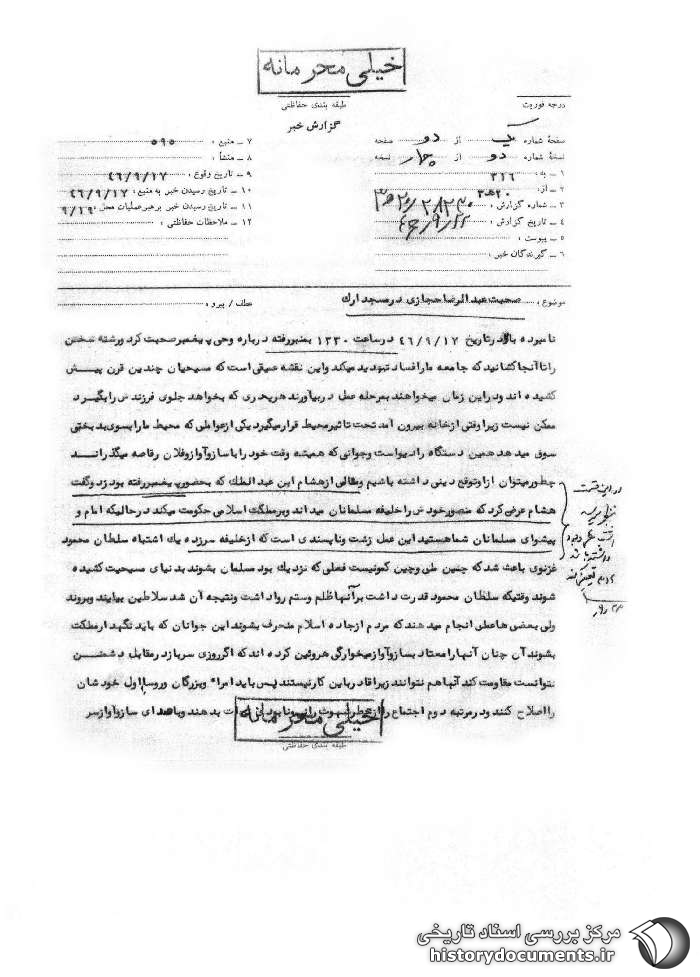 خیلی محرمانه
طبقه بندی حفاظتی
درجه فوریت
گزارش خبر
صفحهٔ شماره یک از دو صفحه
نسخهٔ شماره دو از چهار نسخه
۱ – به : ۳۱۶
۲ – از : ۲۰ هـ ۳
۳ – شماره گزارش :
۴ – تاریخ گزارش :
۵ – پیوست :
۶ – گیرندگان خبر :
۷ – منبع : ۵۹۵
۸ – منشأ :
۹ – تاریخ وقوع : ۴۶/۹/۱۷
۱۰ – تاریخ رسیدن خبر به منبع : ۴۶/۹/۱۷
۱۱ – تاریخ رسیدن خبر برهبر عملیات محل : ۹/۱۹
۱۲ – ملاحظات حفاظتی :
موضوع : صحبت عبدالرضا حجازی در مسجد ارك
عطف / پیرو :
نامبرده بالا در تاریخ ۴۶/۹/۱۷ در ساعت ۱۳۳۰ بمنبر رفته درباره وحی پیغمبر صحبت کرد و رشته سخن
را تا آنجا کشانید که جامعه ما را فساد تهدید میکند و این نقشه عمیقی است که مسیحیان چندین قرن پیش
کشیده اند و در این زمان میخواهند بمرحله عمل در بیاورند هر پدری که بخواهد جلوی فرزندش را بگیرد
ممکن نیست زیرا وقتی از خانه بیرون آمد تحت تاثیر محیط قرار میگیرد یکی از عواملی که محیط ما را بسوی بدبختی
سوق میدهد همین دستگاه رادیو است و جوانی که همیشه وقت خود را با ساز و آواز و فلان رقاصه میگذراند
چطور میتوان از او توقع دینی داشته باشیم و مطالبی از هشام ابن عبدالملك که بحضور پیغمبر رفته بود زد و گفت
هشام عرض کرد که منصور خودش را خلیفه مسلمانان میداند و بر مملکت اسلامی حکومت میکند در حالیکه امام و
پیشوای مسلمانان شما هستید این عمل زشت و ناپسندی است که از خلیفه سر زده یك اشتباه سلطان محمود
غزنوی باعث شد که چنین ملی و چین کمونیست فعلی که نزدیك بود مسلمان بشوند بدنیای مسیحیت کشیده
شوند وقتیکه سلطان محمود قدرت داشت بر آنها ظلم و ستم روا داشت و نتیجه آن شد سلاطین بیایند و بروند
ولی بعضی ها عملی انجام میدهند که مردم از جاده اسلام منحرف بشوند این جوانان که باید نگهدار مملکت
بشوند آن چنان آنها را معتاد بساز و آواز میخوارگی هروئین کرده اند که اگر روزی سرباز در مقابل دشمن
نتوانست مقاومت کند آنها هم نتوانند زیرا قادر باین کار نیستند پس باید امراء و بزرگان و روسا اول خودشان
را اصلاح کنند و در مرتبه دوم اجتماع را از خطر شهوت رانی و نابودی نجات بدهند و با صدای ساز و آواز سر
در این قسمت
خیلی محرمانه
طبقه بندی حفاظتی
مرکز بررسی اسناد تاریخی
historydocuments.ir